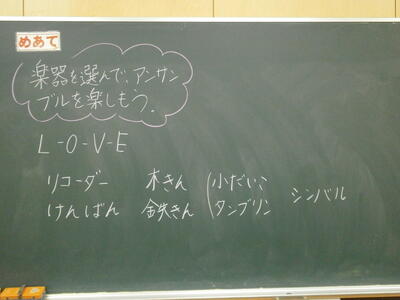 めあて
楽器を選んで、アンサン
ブルを楽しもう。
L-O-V-E
リコーダー 木きん 小だいこ シンバル
けんばん 鉄きん タンブリン